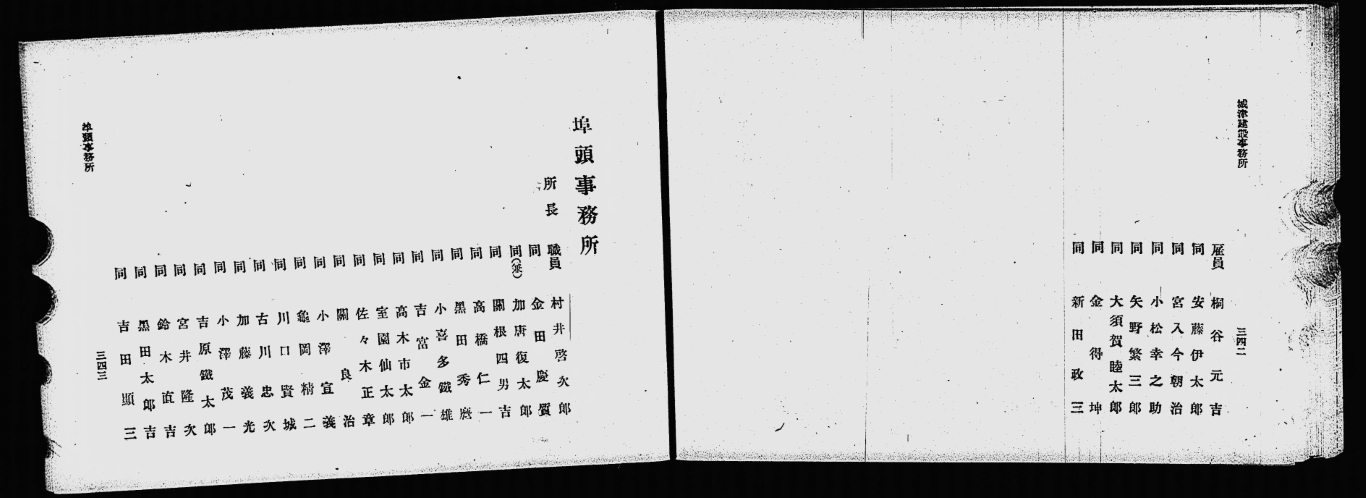 城津建設事務所
三四二
雇員 桐谷元吉
同 安藤伊太郎
同 宮入今朝治
同 小松幸之助
同 矢野繁三郎
同 大須賀睦太郎
同 金得坤
同 新田政三
埠頭事務所
所長
職員 村井啓次郎
同 金田慶賀
同(兼) 加唐復太郎
同 關根四男吉
同 高橋仁一
同 黑田秀麿
同 小喜多鐵雄
同 吉富金一
同 高木市太郎
同 室園仙太郎
同 佐々木正章
同 關良治
同 小澤宣義
同 龜岡精二
同 川口賢城
同 古川忠次
同 加藤義光
同 小澤茂一
同 吉原鐵太郎
同 宮井隆次
同 鈴木直吉
同 黑田太郎吉
同 吉田顯三
埠頭事務所
三四三